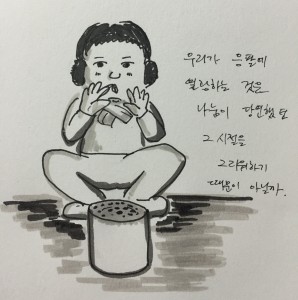 우리가 응팔에
열광하는 것은
나눔이 당연했던
그 시절을
그리워하기
때문이 아닐까.